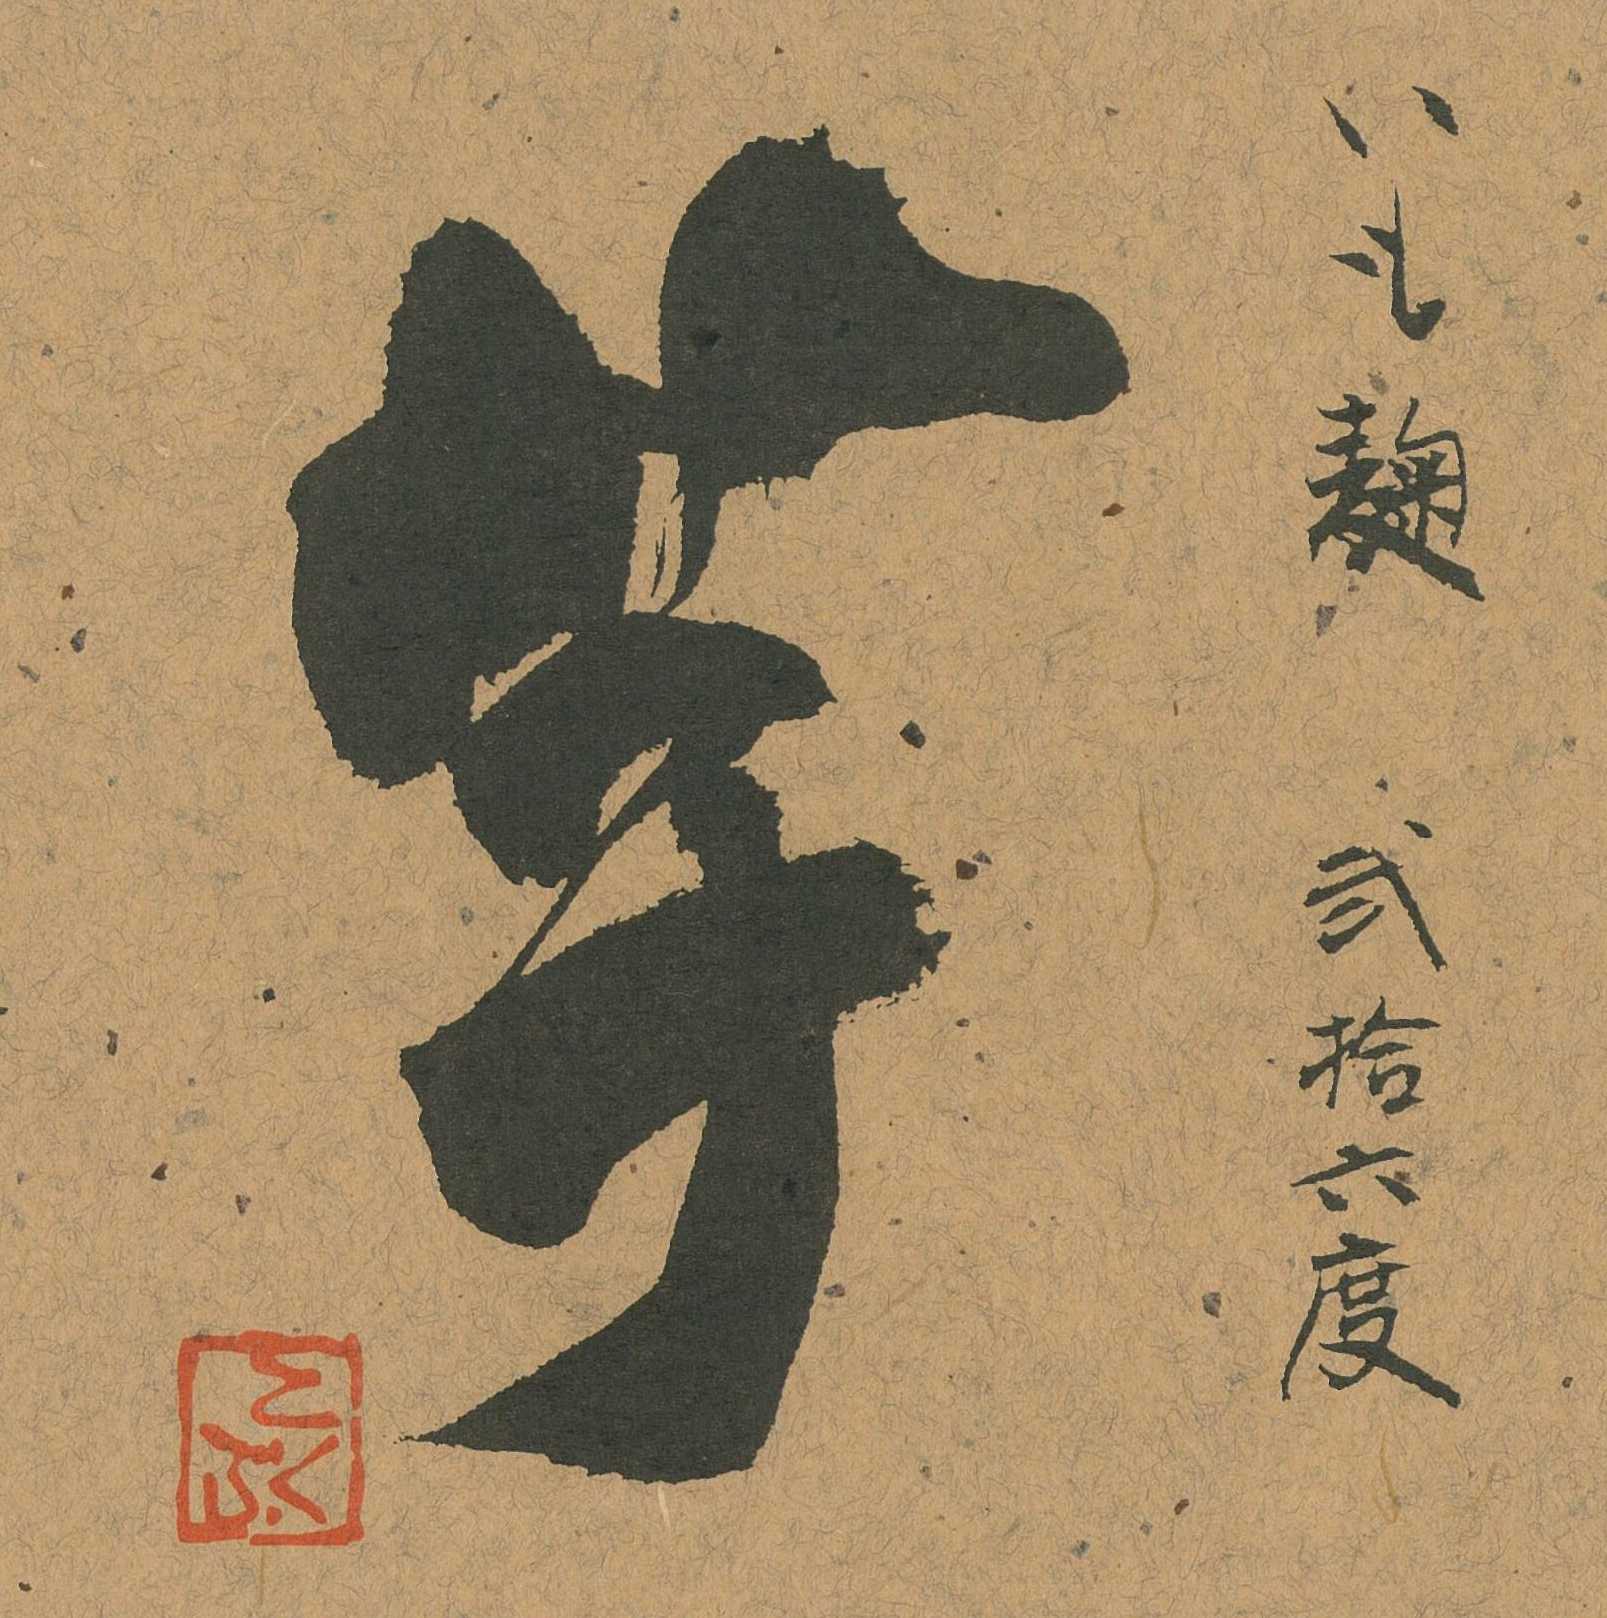 いも麹 弐拾六度
芋